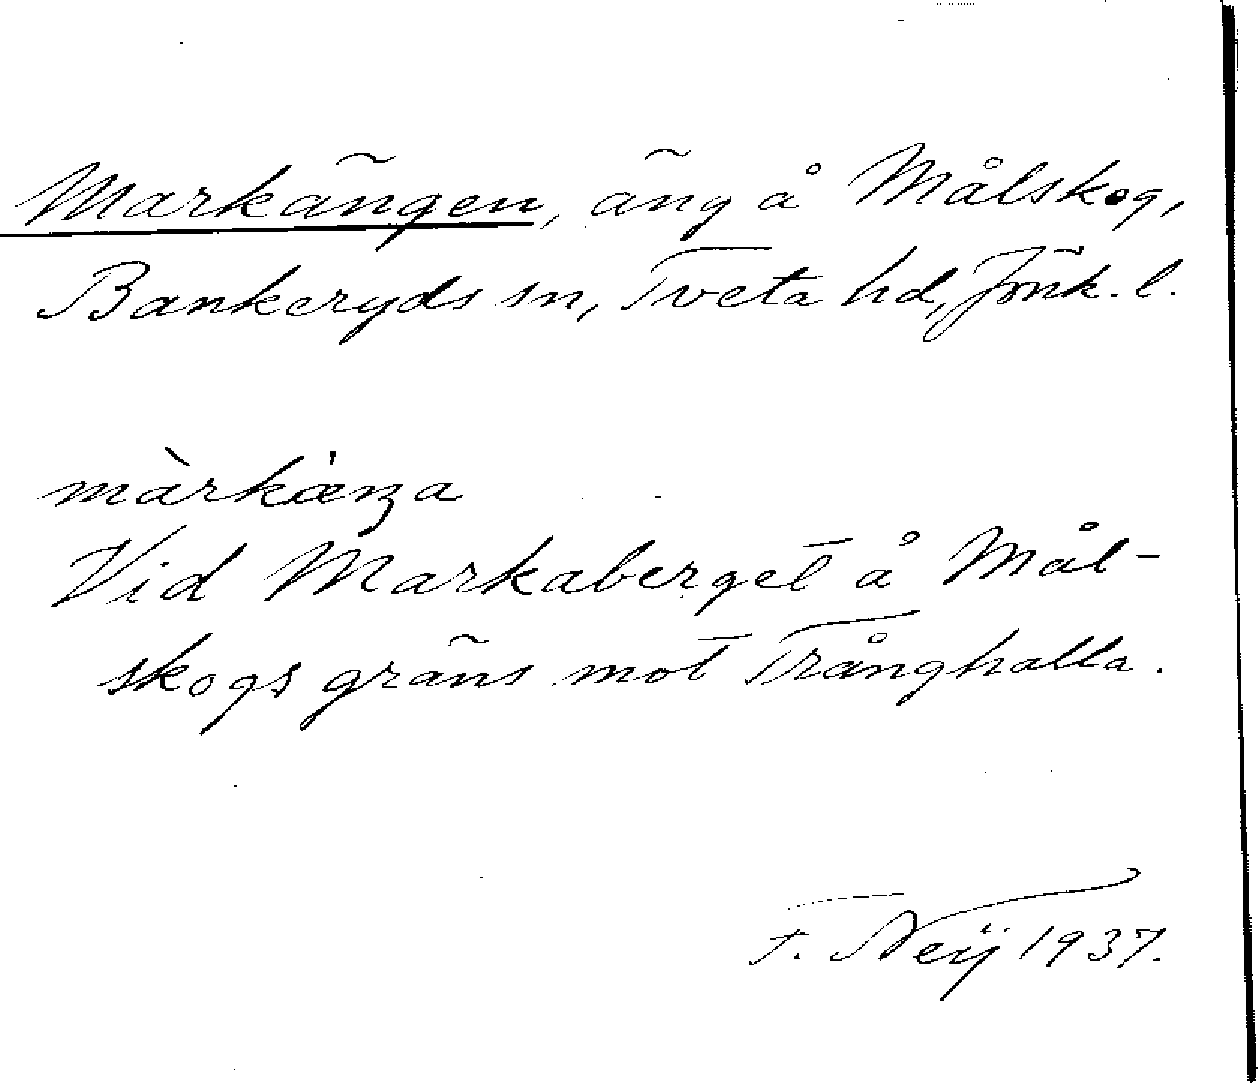 Markängen, äng å Målskog,
Bankeryds sn, Tveta hd, Jönk. l.
màrkæŋa
Vid Markaberget å Mål-
skogs gräns mot Trånghalla.
F. Neij 1937.